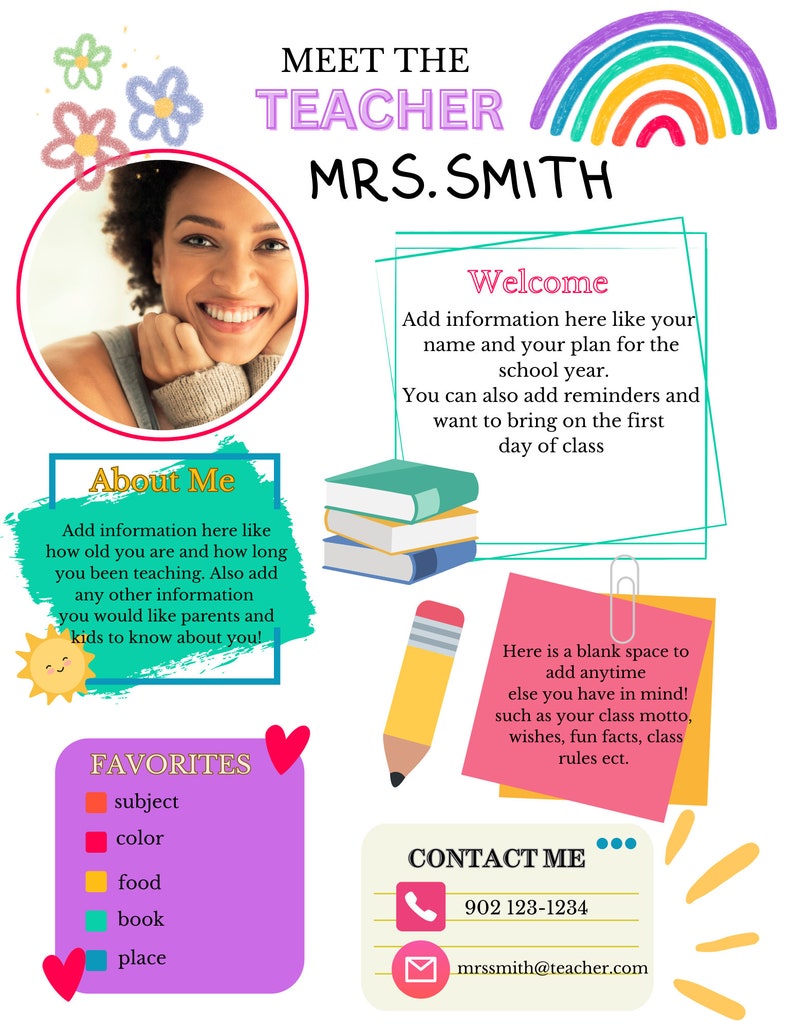 MEET THE
TEACHER
MRS. SMITH
Welcome
Add information here like your
name and your plan for the
school year.
You can also add reminders and
want to bring on the first
day of class
About Me
Add information here like
how old you are and how long
you been teaching. Also add
any other information
you would like parents and
kids to know about you!
Here is a blank space to
add anytime
else you have in mind!
such as your class motto,
wishes, fun facts, class
rules ect.
FAVORITES
subject
color
food
book
place
CONTACT ME
902 123-1234
mrssmith@teacher.com